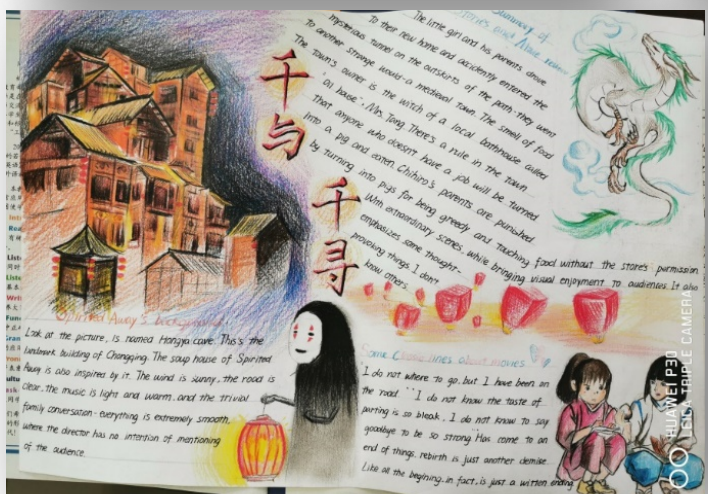 千与
千寻
Summary of
The little girl and his parents drove
To their new home and accidently entered the
mysterious tunnel on the outskirts of the path. they went
to another strange would-a medieval town. The smell of food
The town's owner is the witch of a local bathhouse called
"oil house", Mr. Tang. There's a rule in the town
that anyone who doesn't have a job will be turned
into a pig and eaten. Chihiro's parents are punished
by turning into pigs for being greedy and touching food without the store's permission
With extraordinary scenes, while bringing visual enjoyment to audiences. It also
emphasizes some thought-
provoking things, I don't
know others.
Spirited Away's background
Look at the picture, is named Hongya cave. This's the
landmark building of Chongqing. The soup house of Spirited
Away is also inspired by it. The wind is sunny, the road is
clear, the music is light and warm, and the trivial
family conversation - everything is extremely smooth,
where the director has no intention of mentioning
of the audience.
Some Classic lines about movies
I do not where to go, but I have been on
the road. I do not know the taste of
parting is so bleak, I do not know to say
goodbye to be so strong. Has come to an
end of things, rebirth is just another demise.
Like all the begining, in fact, is just a written ending
HUAWEI P30
LEICA TRIPLE CAMERA